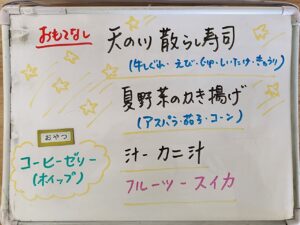 おもてなし 天の川 散らし寿司
(牛しぐれ・えび・たまご・しいたけ・きゅうり)
夏野菜のかき揚げ
(アスパラ・茄子・コーン)
おやつ
コーヒーゼリー
(ホイップ)
汁ーカニ汁
フルーツースイカ